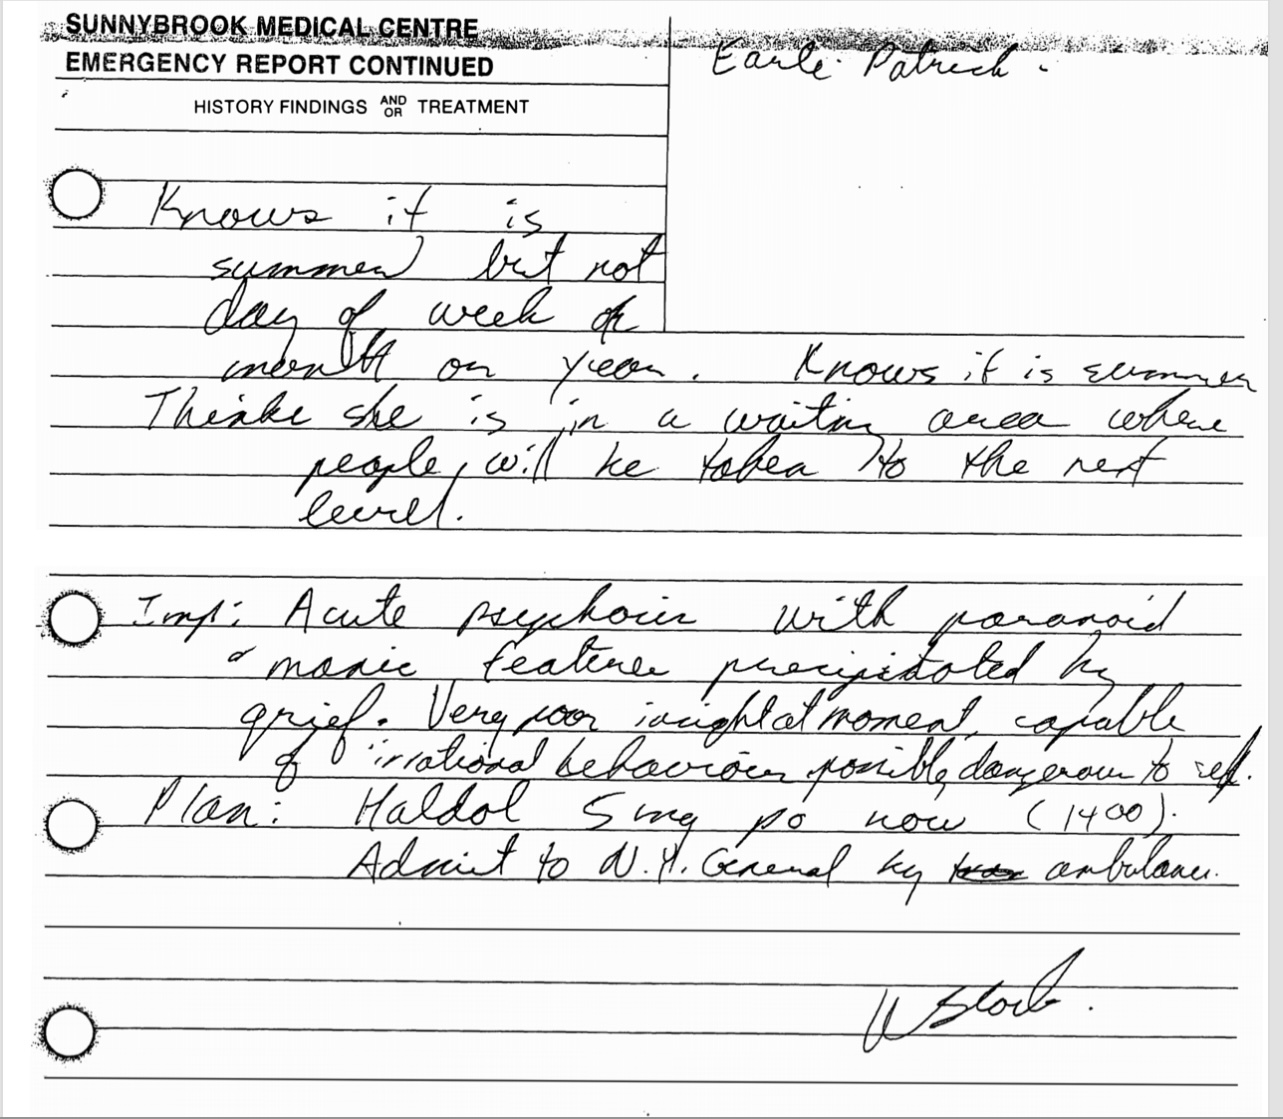 SUNNYBROOK MEDICAL CENTRE
EMERGENCY REPORT CONTINUED
HISTORY FINDINGS AND OR TREATMENT
Earle Patrick.
Knows it is
summer but not
day of week or
month or year. Knows it is summer
Thinks she is in a waiting area where
people will be taken to the next
level.
Imp: Acute psychosis with paranoid
manic features precipitated by
grief. Very poor insight at moment, capable
of irrational behaviour possibly dangerous to self.
Plan: Haldol 5 mg po now (1400).
Admit to N.Y. General by ambulance.